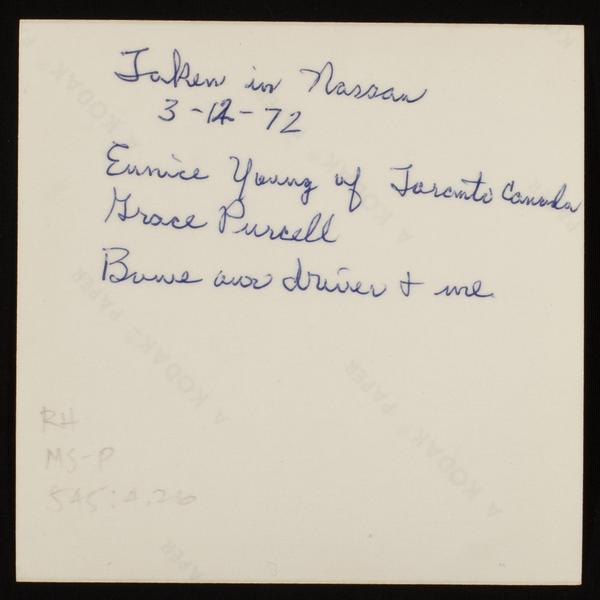 Taken in Nassau
3-12-72
Eunice Young of Toronto Canada
Grace Purcell
Bowe our driver & me
RH
MS-P
545:4.26
A KODAK PAPER
A KODAK PAPER
A KODAK PAPER
PAPER